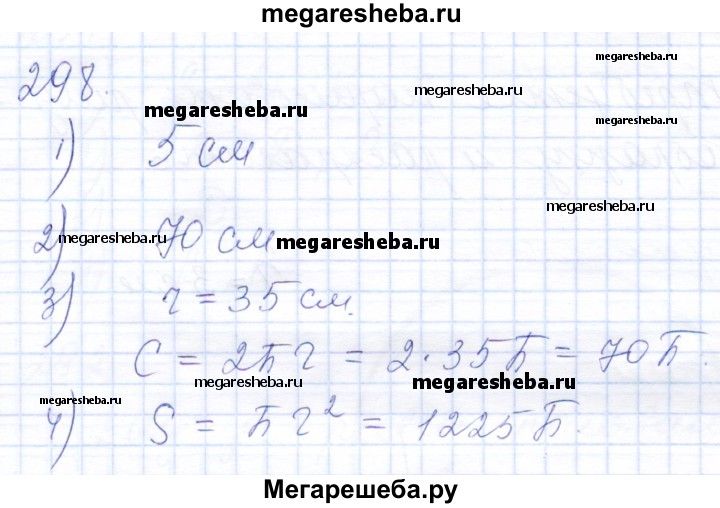 megaresheba.ru
298.
megaresheba.ru
megaresheba.ru
megaresheba.ru
megaresheba.ru
1) 5 см
2) 70 см
megaresheba.ru
megaresheba.ru
megaresheba.ru
3) r = 35 см.
C = 2πr = 2·35π = 70π.
megaresheba.ru
megaresheba.ru
megaresheba.ru
4) S = πr² = 1225π.
Мегарешеба.ру